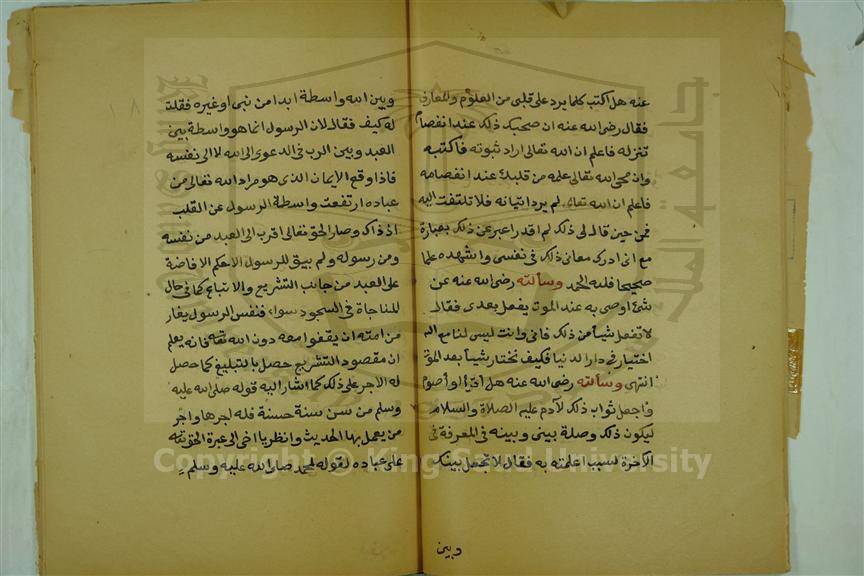 عنه هل اكتب كلما يرد على قلبى من العلوم والمعارف
فقال رضى الله عنه ان صحبك ذلك عند انفصام
تنزله فاعلم ان الله تعالى اراد ثبوته فاكتبه
وان محى الله تعالى علمه من قلبك عند انفصامه
فاعلم ان الله تعالى لم يرد اتيانه فلا تلتفت اليه
فمن حين قال لى ذلك لم اقدر اعبر عن ذلك بعبارة
مع انى ادرك معانى ذلك فى نفسى واشهده علما
صحيحا فلله الحمد وسألته رضى الله عنه عن
شئ اوصى به عند الموت يفعل بعدى فقال
لا تفعل شيأ من ذلك فانى وانت ليس لنا مع الله
اختيار فى دار الدنيا فكيف نختار شيأ بعد الموت
انتهى وسألته رضى الله عنه هل أقرأ او أصوم
واجعل ثواب ذلك لآدم عليه الصلاة والسلام
ليكون ذلك وصلة بينى وبينه فى المعرفة فى
الآخرة لسبب اعلمته به فقال لا تجعل بينك
وبين
وبين الله واسطة ابدا من نبى او غيره فقلت
له كيف فقال لان الرسول انما هو واسطة بين
العبد وبين الرب فى الدعوى الى الله لا الى نفسه
فاذا وقع الايمان الذى هو مراد الله تعالى من
عباده ارتفعت واسطة الرسول عن القلب
اذ ذاك وصار الحق تعالى اقرب الى العبد من نفسه
ومن رسوله ولم يبق للرسول الا حكم الافاضة
على العبد من جانب التشريع والاتباع كما فى حال
المناجاة فى السجود سواء فنفس الرسول يغار
من امته ان يقفوا معه دون الله تعه فانه يعلم
ان مقصود التشريع حصل بالتبليغ كما حصل
له الاجر على ذلك كما اشار اليه قوله صلى الله عليه
وسلم من سن سنة حسنة فله اجرها واجر
من يعمل بها الحديث وانظر يا اخى الى غيرة الحق تعه
على عباده لقوله لمحمد صلى الله عليه وسلم
Copyright © King Saud University